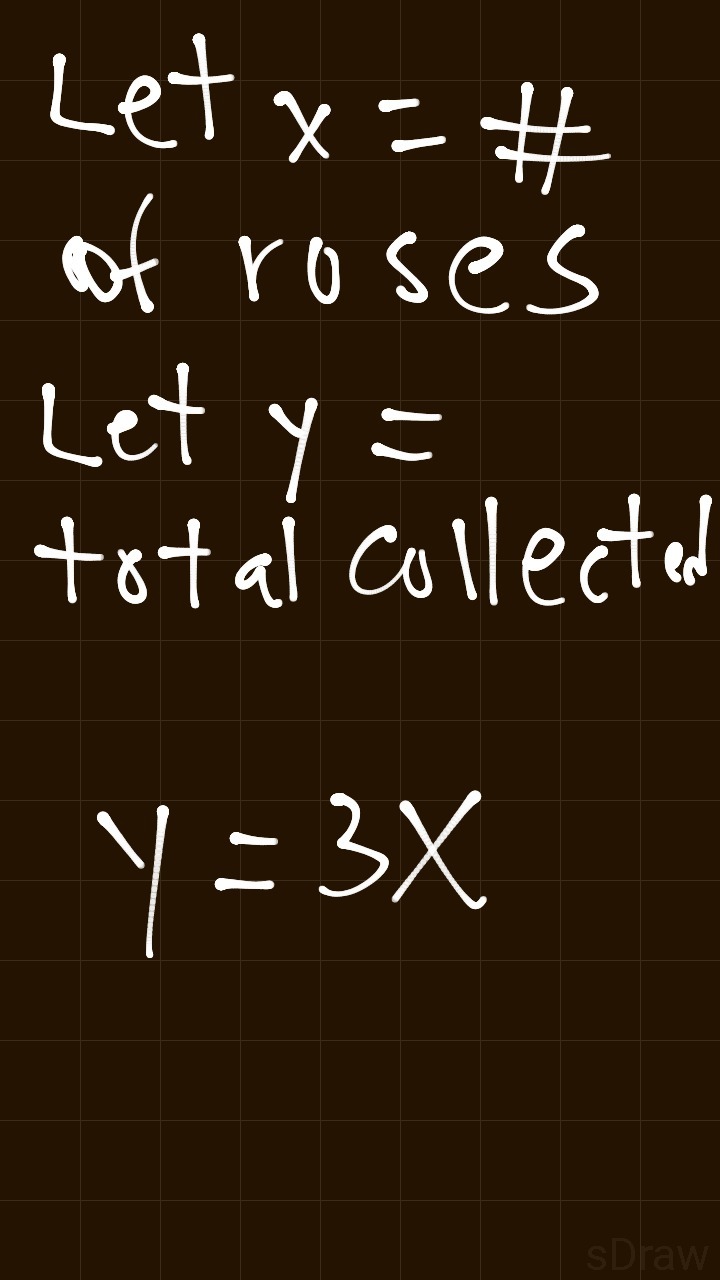 Let x = #
of roses
Let y =
total collected
y = 3X
sDraw